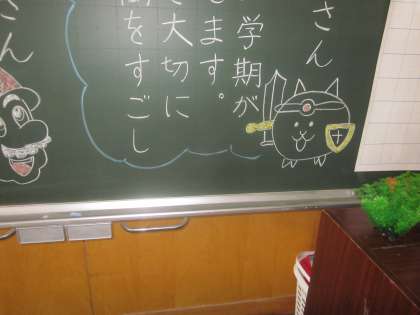 さん
学期が
ます。
大切に
をすごし
さん